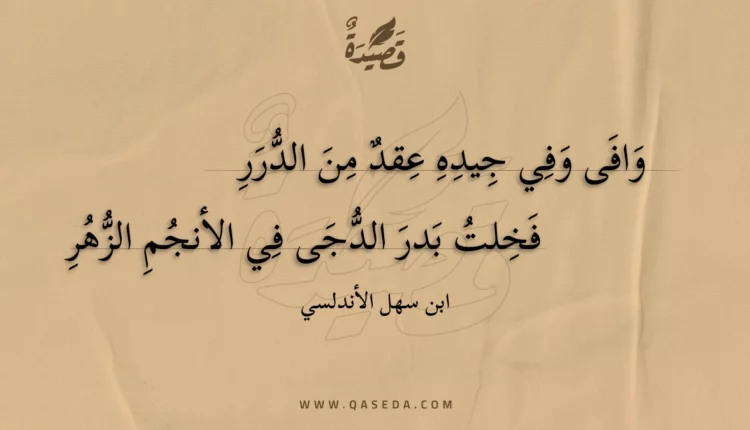 قَصِيْدَةٌ
وَافَى وَفِي جِيدِهِ عِقدٌ مِنَ الدُّرَرِ
فَخِلتُ بَدرَ الدُّجَى فِي الأنجُمِ الزُّهُرِ
ابن سهل الأندلسي
WWW.QASEDA.COM